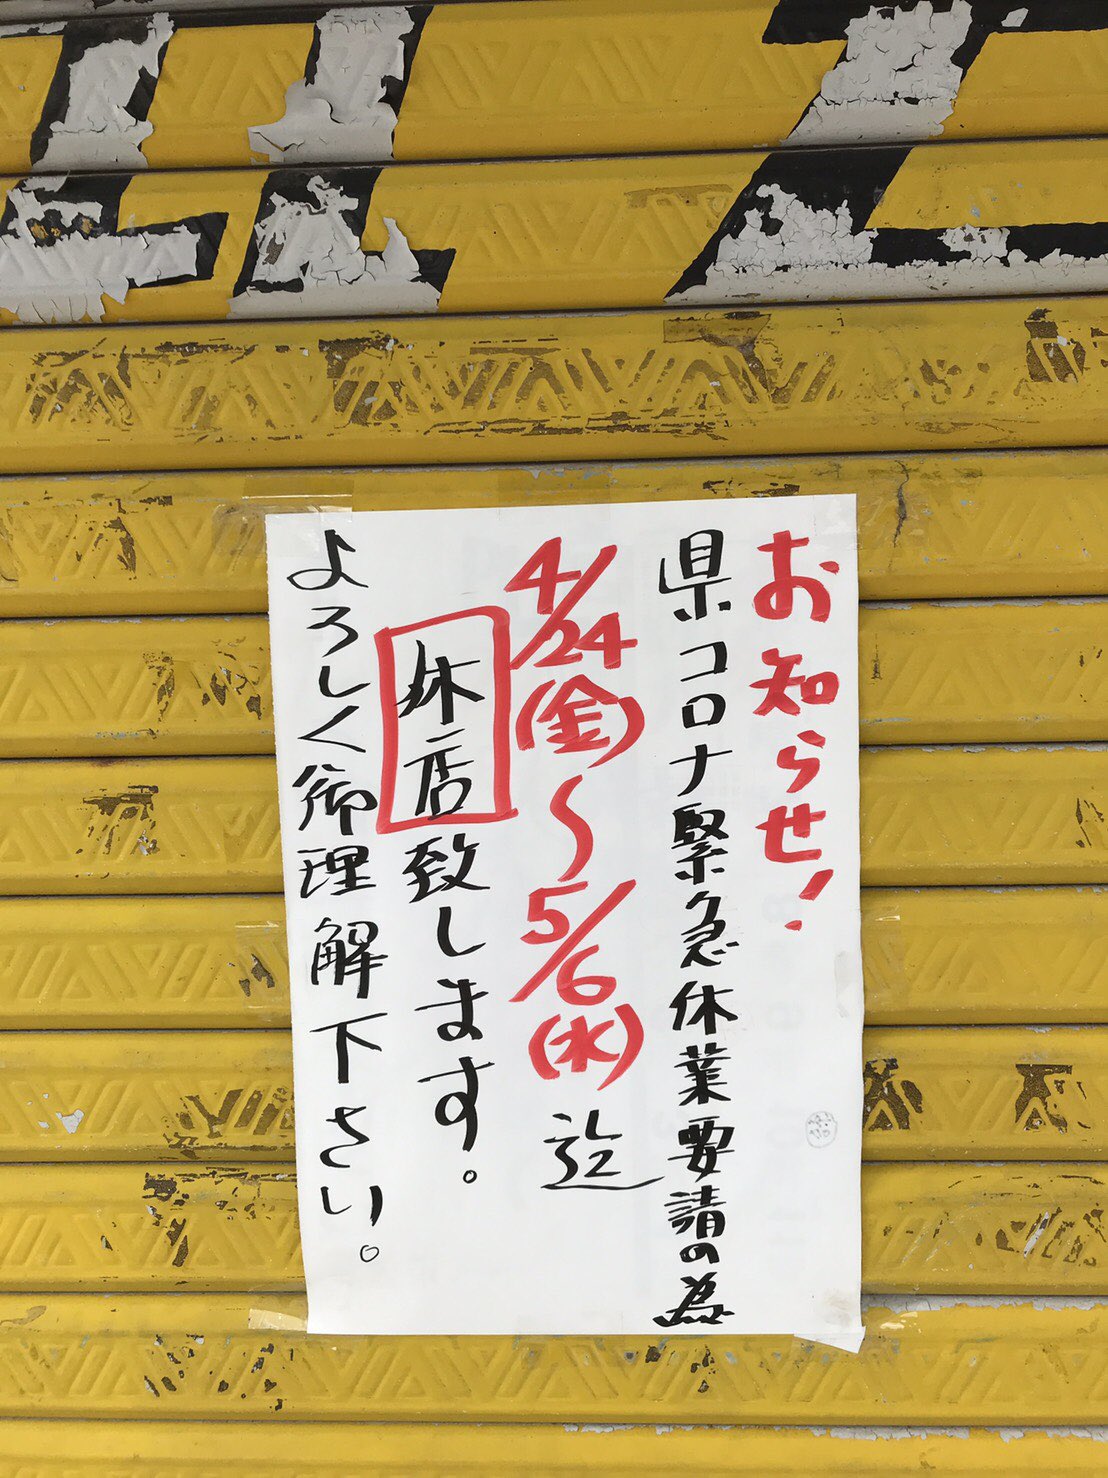 お知らせ！
県コロナ緊急休業要請の為
4/24(金)〜5/6(水)迄
休店致します。
よろしく御理解下さい。